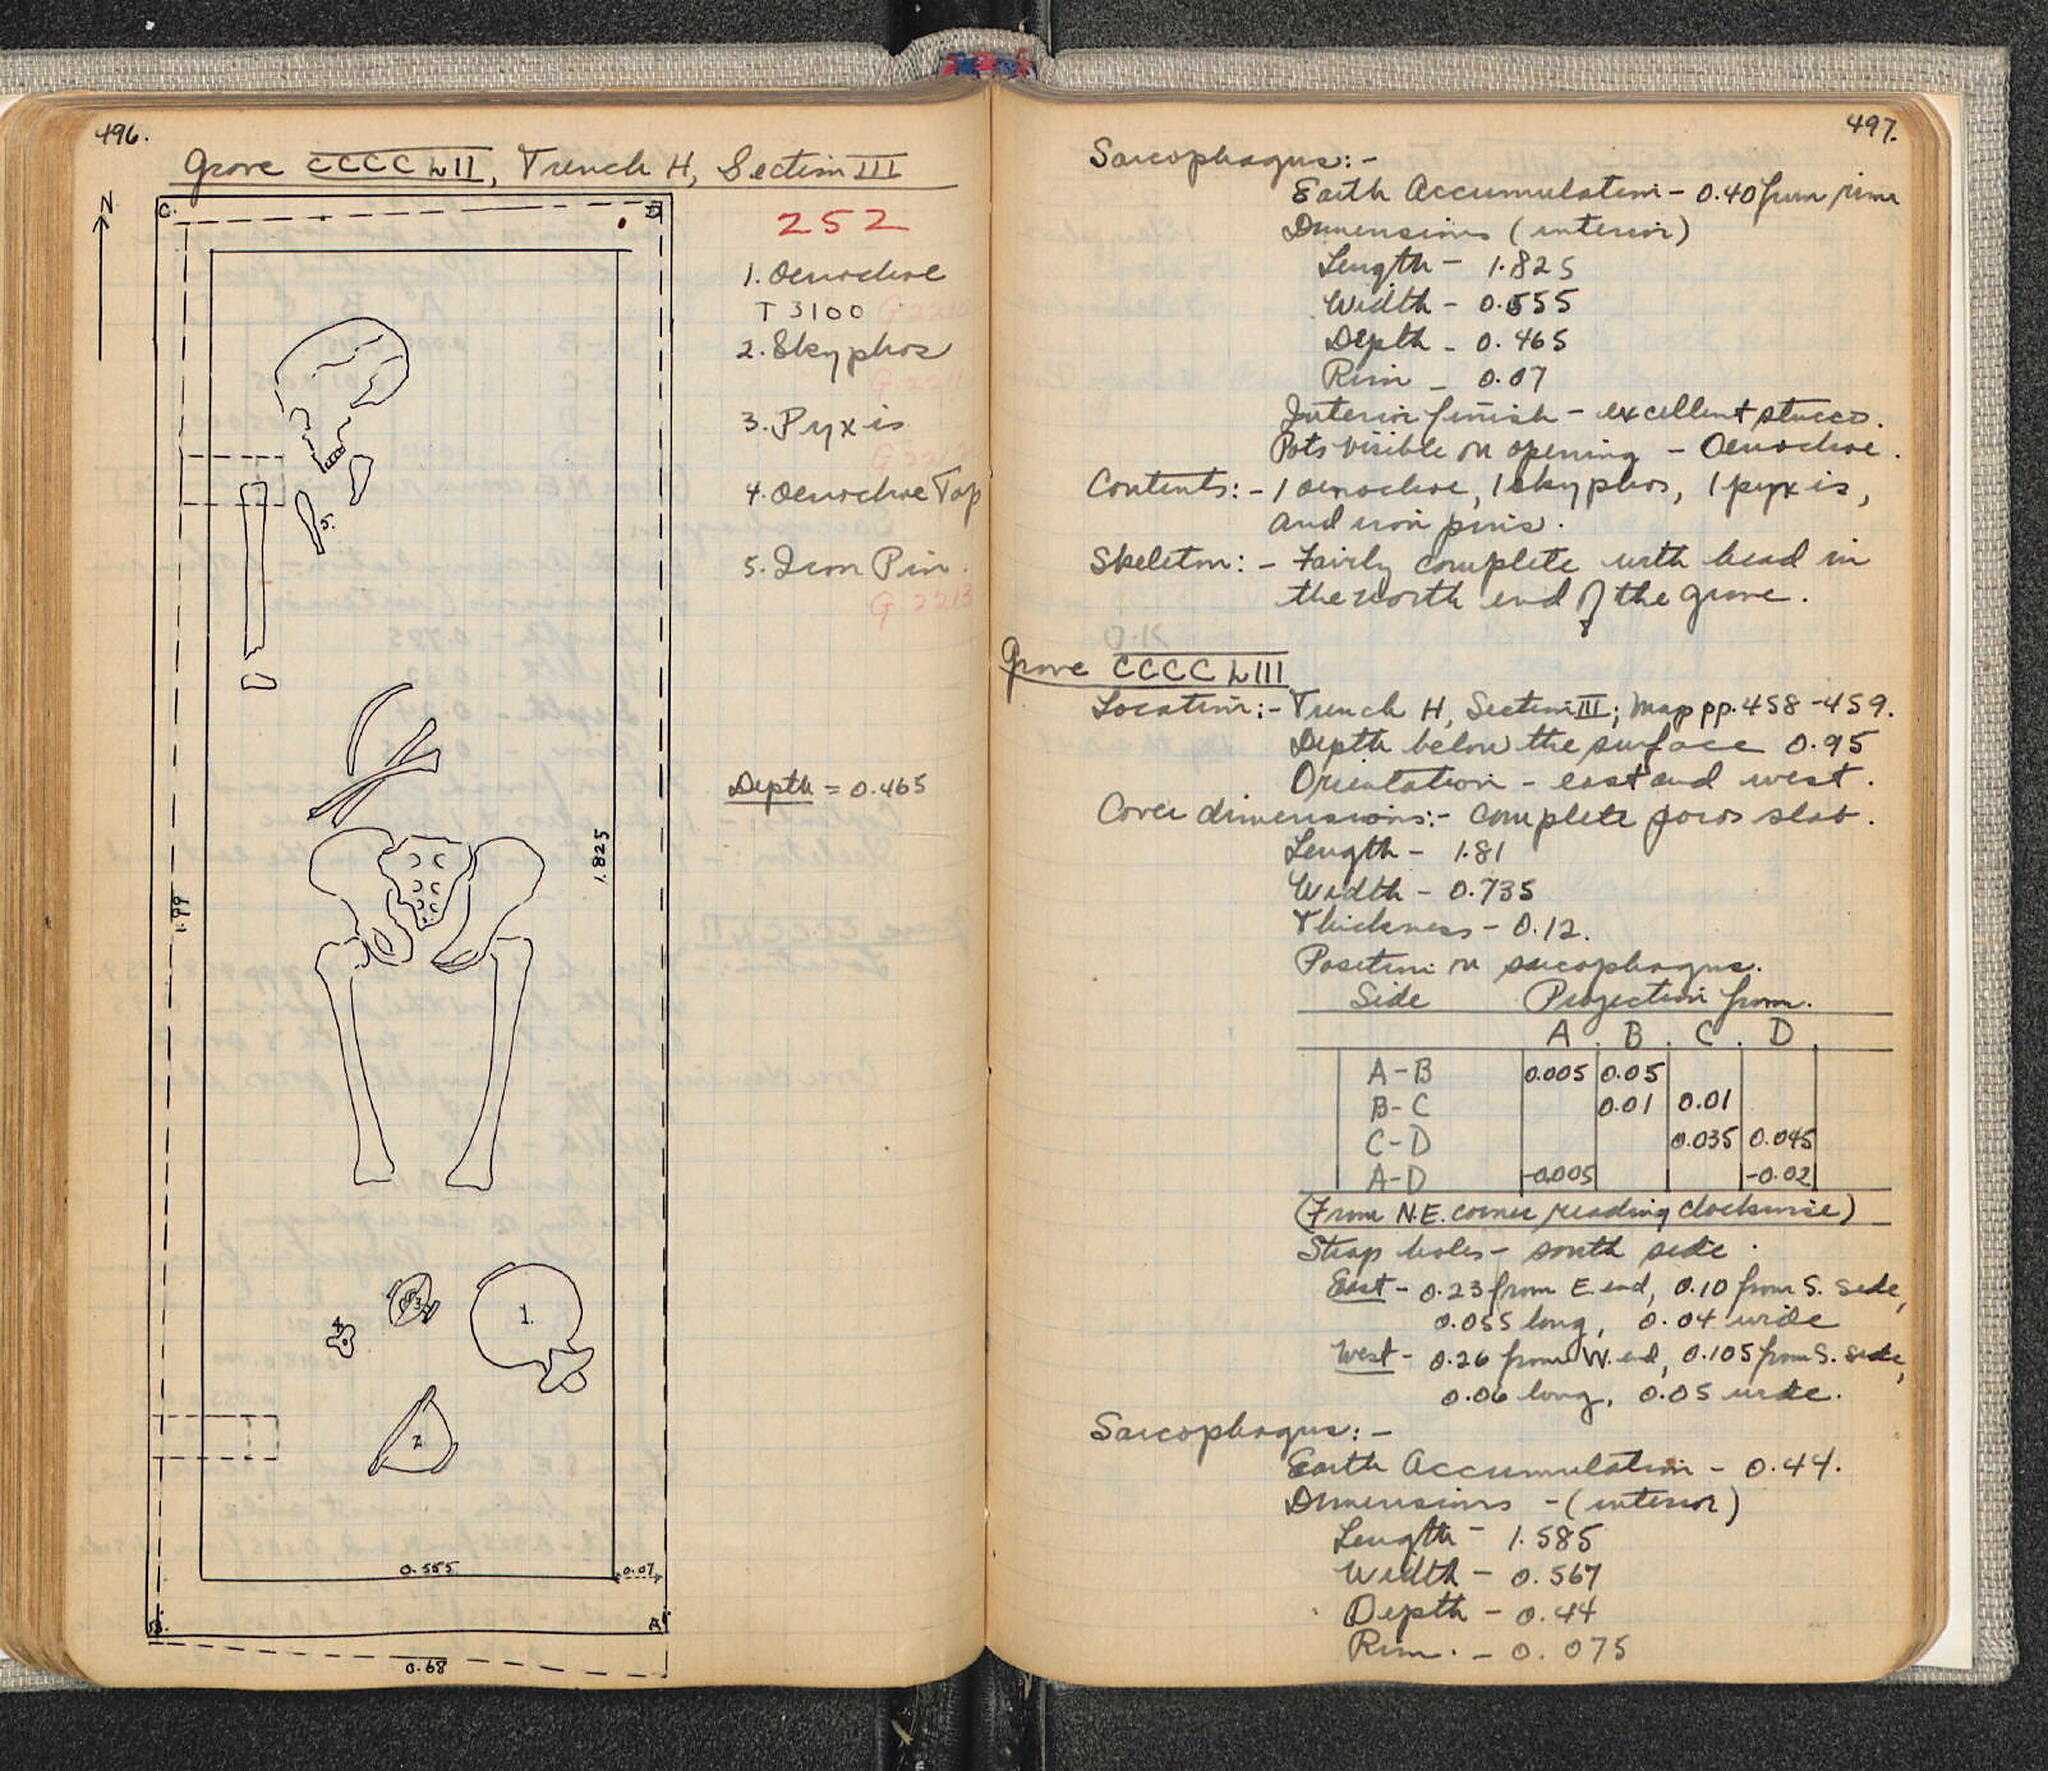 496.
Grave CCCCLII, Trench H, Section III
N
C.
D
252
1. Oenochoe
T 3100 G 2210
2. Skyphos
G 2211
3. Pyxis
G 2212
4. Oenochoe Top
5. Iron Pin.
G 2213
5.
Depth = 0.465
1.825
1.99
3
4
1.
2
0.555
0.07
B.
A
0.68
497.
Sarcophagus:-
Earth Accumulation - 0.40 from rim
Dimensions (interior)
Length - 1.825
Width - 0.555
Depth - 0.465
Rim - 0.07
Interior finish - excellent stucco.
Pots visible on opening - Oenochoe.
Contents:- 1 oenochoe, 1 skyphos, 1 pyxis,
and iron pins.
Skeleton:- Fairly complete with head in
the north end of the grave.
Grave CCCCLIII
Location:- Trench H, Section III; Map pp. 458-459.
Depth below the surface 0.95
Orientation - east and west.
Cover dimensions:- Complete poros slab.
Length - 1.81
Width - 0.735
Thickness - 0.12.
Position on sarcophagus.
Side Projection from.
A. B. C. D.
A-B 0.005 0.05
B-C 0.01 0.01
C-D 0.035 0.045
A-D -0.005 -0.02
(From N.E. corner reading clockwise)
Strap holes - south side.
East - 0.23 from E. end, 0.10 from S. side,
0.055 long, 0.04 wide
West - 0.26 from W. end, 0.105 from S. side,
0.06 long, 0.05 wide.
Sarcophagus:-
Earth Accumulation - 0.44.
Dimensions - (interior)
Length - 1.585
Width - 0.567
Depth - 0.44
Rim. - 0.075